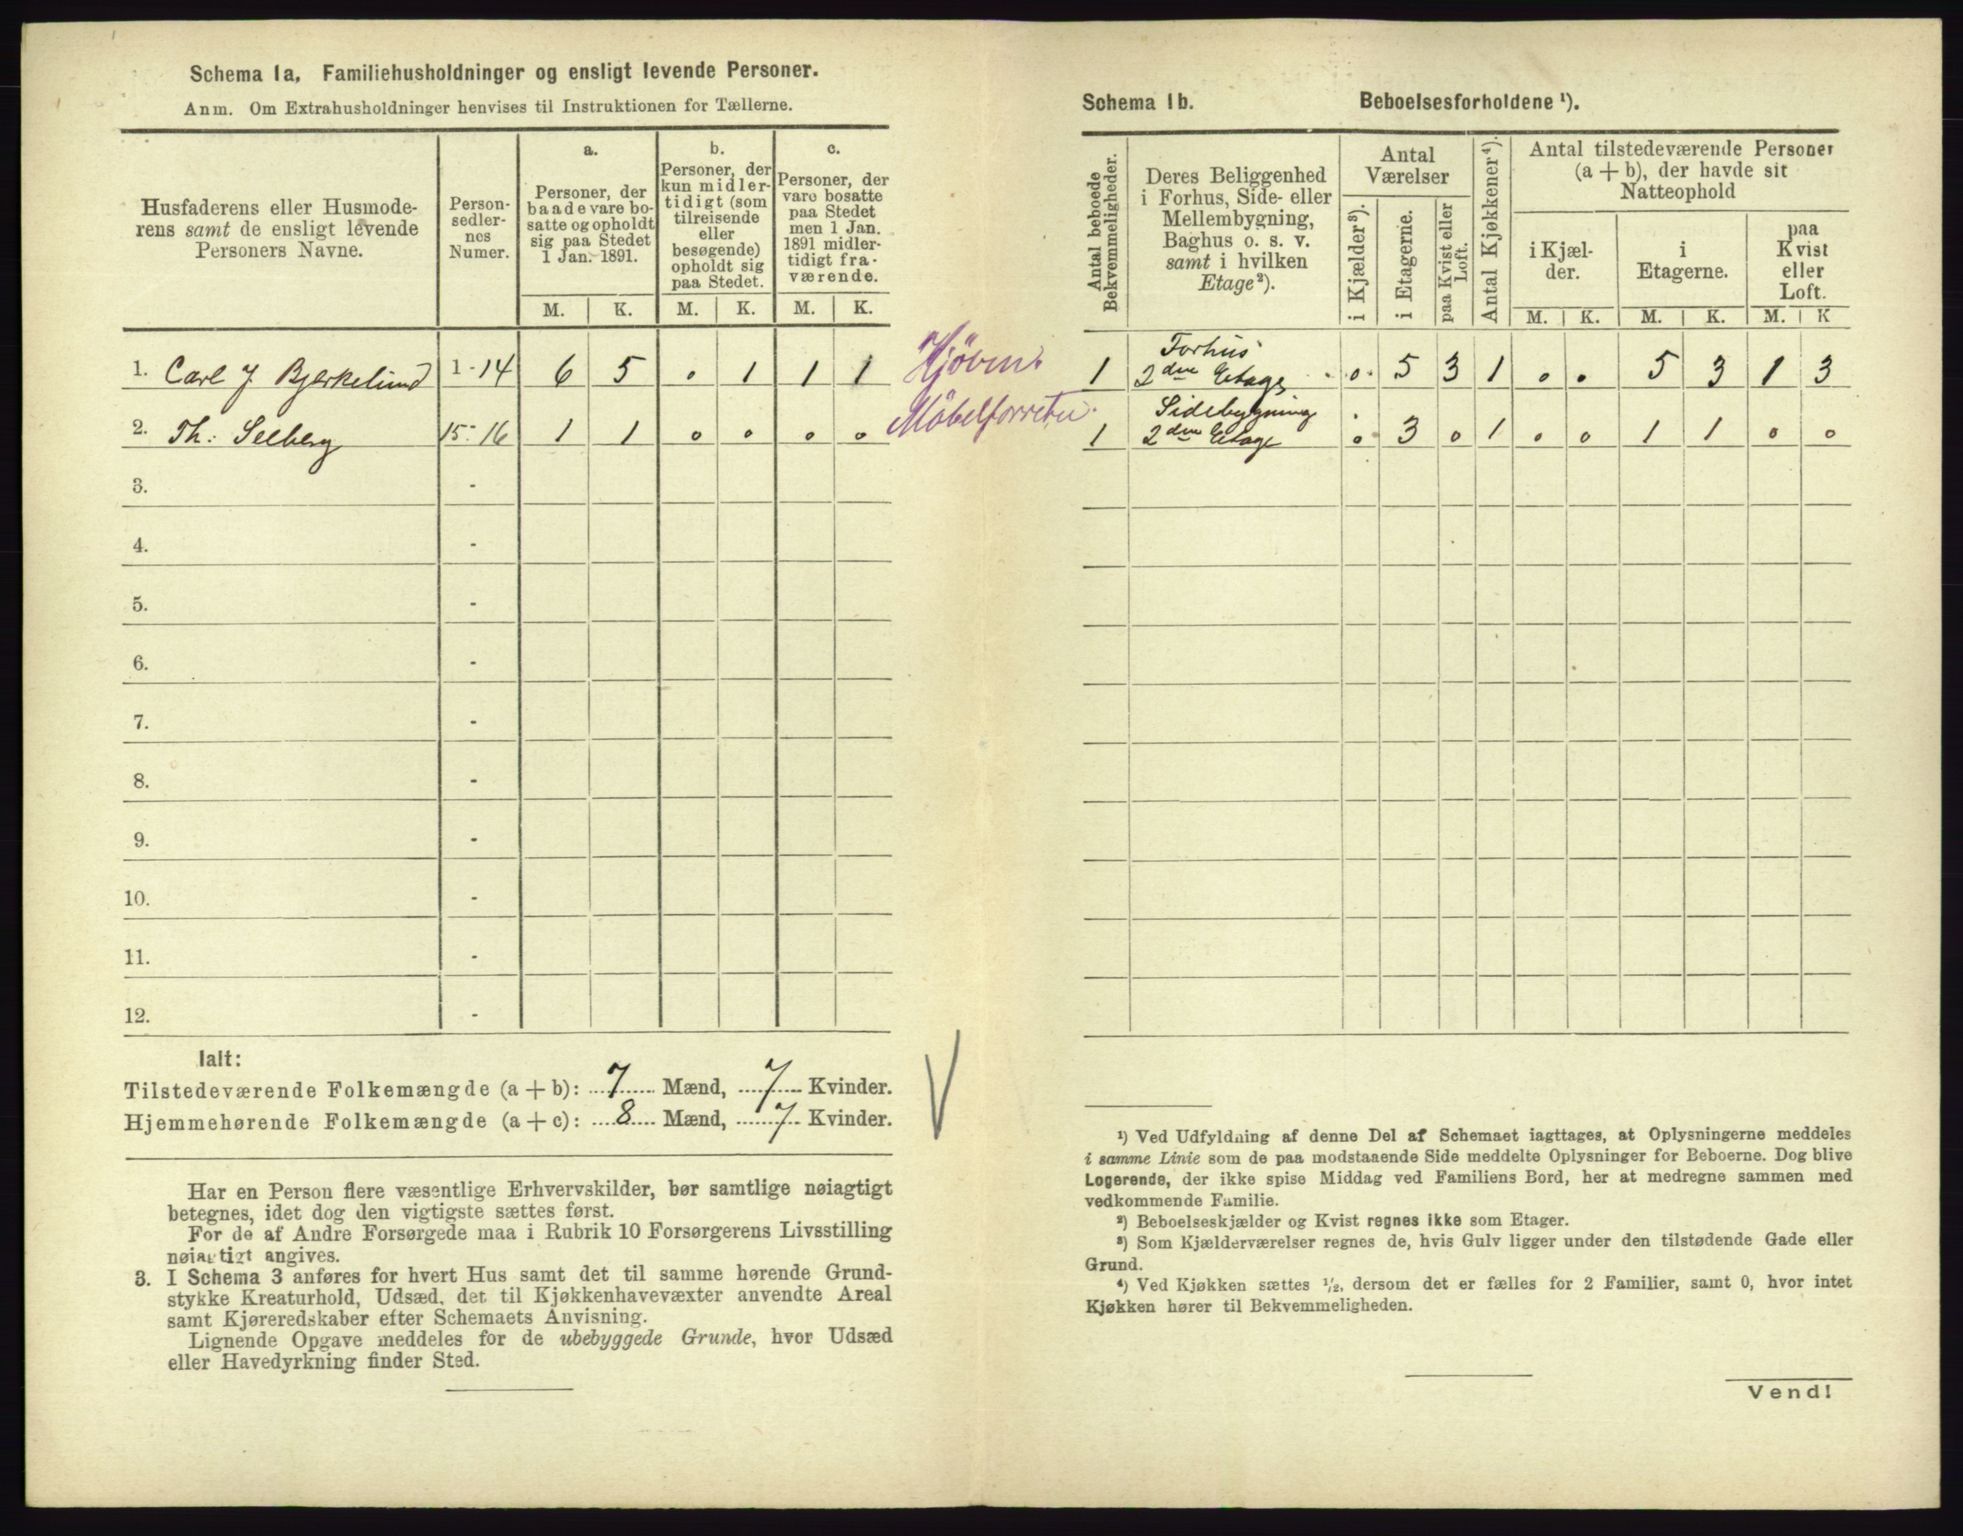 Schema 1a, Familiehusholdninger og ensligt levende Personer.
Anm. Om Extrahusholdninger henvises til Instruktionen for Tællerne.
Husfaderens eller Husmode-
rens samt de ensligt levende
Personers Navne.
Person-
sedler-
nes
Numer.
a.
Personer, der
baade vare bo-
satte og opholdt
sig paa Stedet
1 Jan. 1891.
b.
Personer, der
kun midler-
tidigt (som
tilreisende
eller
besøgende)
opholdt sig
paa Stedet.
c.
Personer, der
vare bosatte
paa Stedet
men 1 Jan.
1891 midler-
tidigt fra-
værende.
M. K. M. K. M. K.
1. Carl J. Bjerkelund 1-14 6 5 . 1 1 1 Hjöven.
2. Th: Seeberg 15-16 1 1 0 0 0 0 Möbelforretn.
3. -
4. -
5. -
6. -
7. -
8. -
9. -
10. -
11. -
12. -
Ialt:
Tilstedeværende Folkemængde (a + b): 7 Mænd, 7 Kvinder.
Hjemmehørende Folkemængde (a + c): 8 Mænd, 7 Kvinder.
Har en Person flere væsentlige Erhvervskilder, bør samtlige nøiagtigt
betegnes, idet dog den vigtigste sættes først.
For de af Andre Forsørgede maa i Rubrik 10 Forsørgerens Livsstilling
nøiagtigt angives.
3. I Schema 3 anføres for hvert Hus samt det til samme hørende Grund-
stykke Kreaturhold, Udsæd, det til Kjøkkenhavevæxter anvendte Areal
samt Kjøreredskaber efter Schemaets Anvisning.
Lignende Opgave meddeles for de ubebyggede Grunde, hvor Udsæd
eller Havedyrkning finder Sted.
Schema 1b. Beboelsesforholdene ¹).
Antal beboede
Bekvemmeligheder.
Deres Beliggenhed
i Forhus, Side- eller
Mellembygning,
Baghus o. s. v.
samt i hvilken
Etage²).
Antal
Værelser
i Kjælder³).
i Etagerne.
paa Kvist eller
Loft.
Antal Kjøkkener⁴).
Antal tilstedeværende Personer
(a + b), der havde sit
Natteophold
i Kjæl-
der.
i
Etagerne.
paa
Kvist
eller
Loft.
M. K. M. K. M. K
Forhus
1 2den Etage 0 5 3 1 0 . 5 3 1 3
Sidebygning
1 2den Etage 0 3 0 1 0 0 1 1 0 0
¹) Ved Udfyldning af denne Del af Schemaet iagttages, at Oplysningerne meddeles
i samme Linie som de paa modstaaende Side meddelte Oplysninger for Beboerne. Dog blive
Logerende, der ikke spise Middag ved Familiens Bord, her at medregne sammen med
vedkommende Familie.
²) Beboelseskjælder og Kvist regnes ikke som Etager.
³) Som Kjælderværelser regnes de, hvis Gulv ligger under den tilstødende Gade eller
Grund.
⁴) Ved Kjøkken sættes ½, dersom det er fælles for 2 Familier, samt 0, hvor intet
Kjøkken hører til Bekvemmeligheden.
Vend!